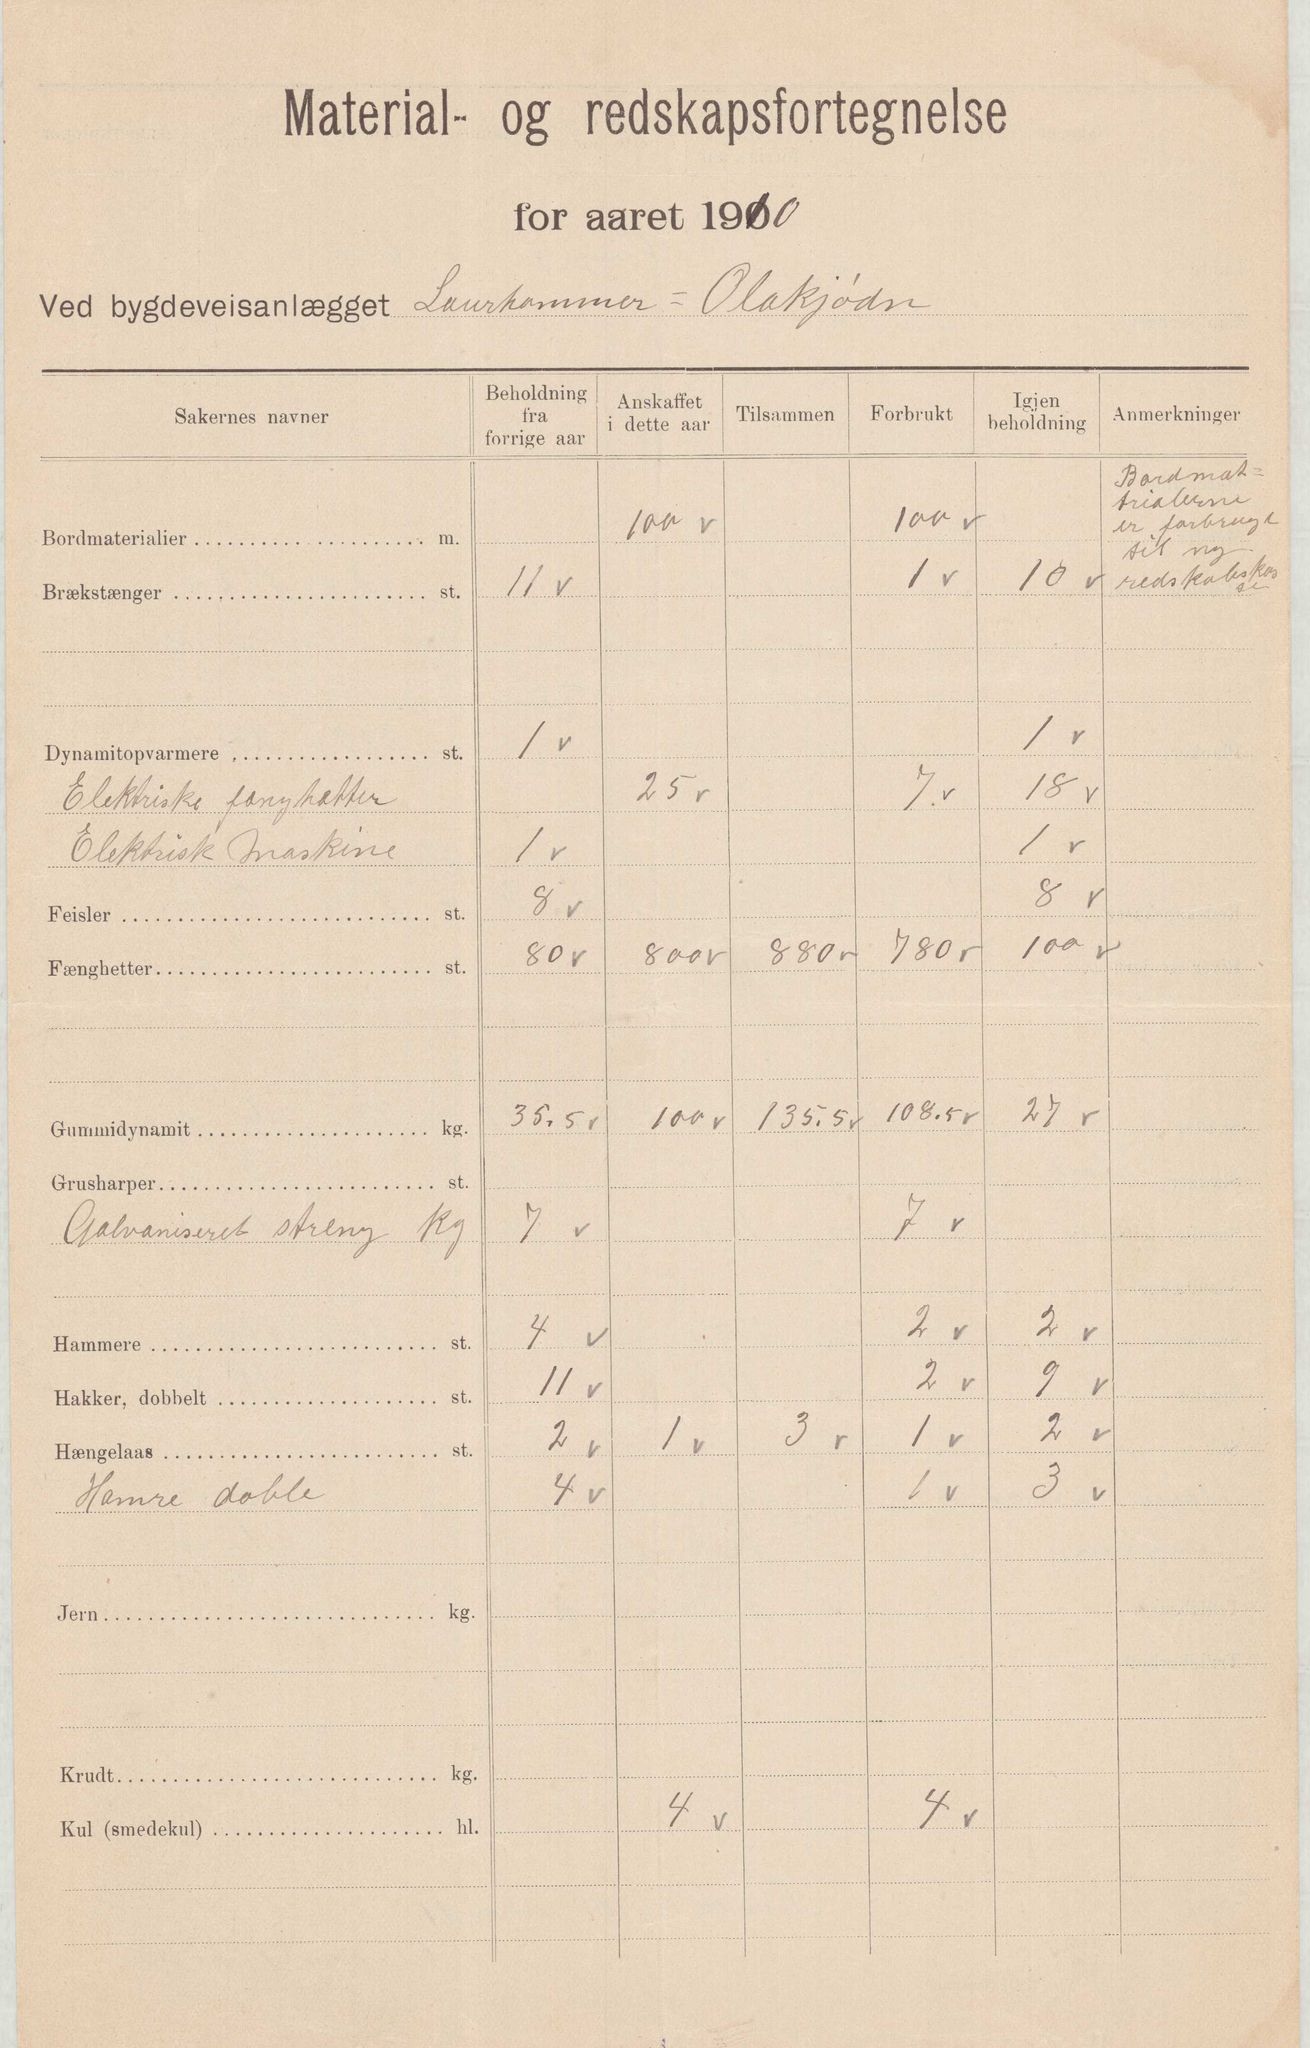 Material- og redskapsfortegnelse
for aaret 1910
Ved bygdeveisanlægget Laurhammer = Olakjødn
Sakernes navner | Beholdning fra forrige aar | Anskaffet i dette aar | Tilsammen | Forbrukt | Igjen beholdning | Anmerkninger
Bordmaterialier m. 100 v 100 v
Bordmat=
trialerne
er forbrugt
til ny
redskabskas
se
Brækstænger st. 11 v 1 v 10 v
Dynamitopvarmere st. 1 v 1 v
Elektriske fænghætter 25 v 7 v 18 v
Elektrisk maskine 1 v 1 v
Feisler st. 8 v 8 v
Fænghetter st. 80 v 800 v 880 v 780 v 100 v
Gummidynamit kg. 35.5 v 100 v 135.5 v 108.5 v 27 v
Grusharper st.
Galvaniseret streng kg 7 v 7 v
Hammere st. 4 v 2 v 2 v
Hakker, dobbelt st. 11 v 2 v 9 v
Hængelaas st. 2 v 1 v 3 v 1 v 2 v
Hamre doble 4 v 1 v 3 v
Jern kg.
Krudt kg.
Kul (smedekul) hl. 4 v 4 v